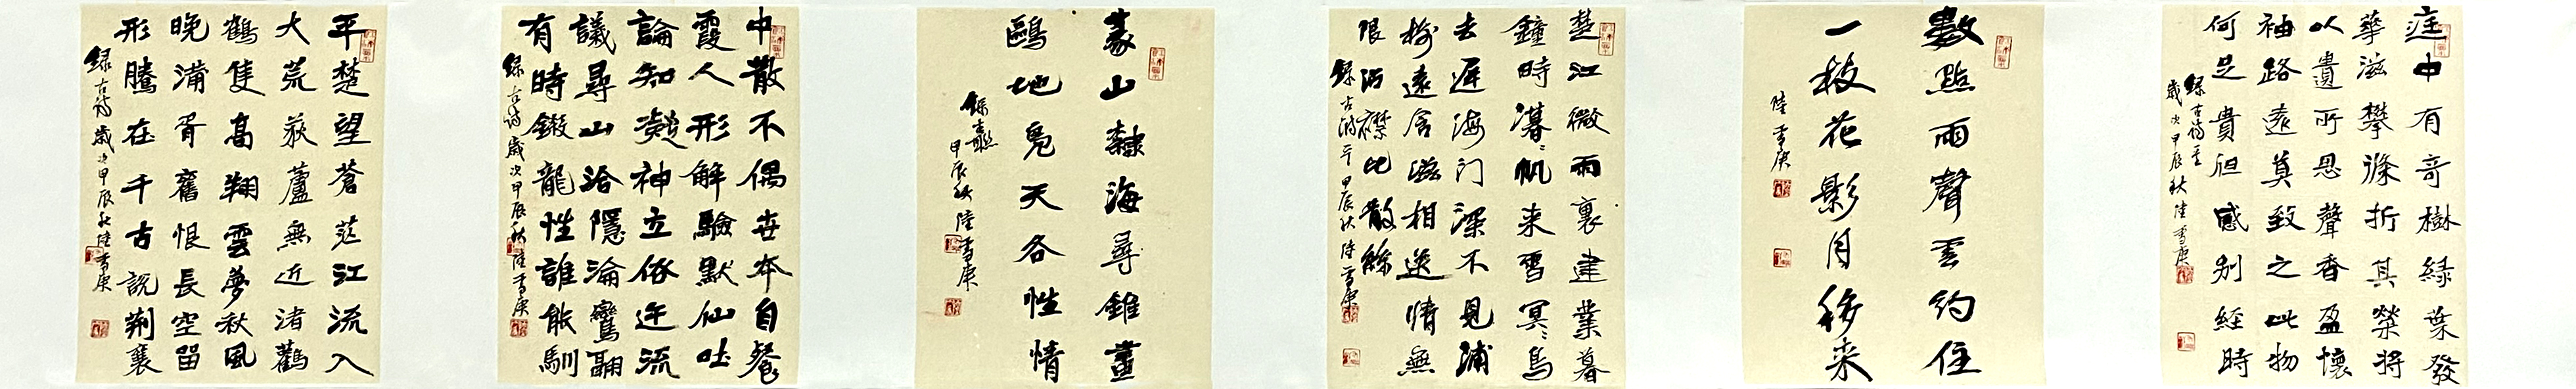 庭中有奇樹緑葉發
華滋攀條折其榮將
以遺所思馨香盈懷
袖路遠莫致之此物
何足貴但感别經時
錄古詩一首
歲次甲辰秋陸雪庚
數點雨聲雲約住
一枝花影月移来
陸雪庚
楚江微雨裏建業暮
鐘時漠漠帆来重冥冥鳥
去遲海门深不見浦
樹遠含滋相送情無
限沾襟比散絲
錄古詩 甲辰秋陸雪庚
篆山隸海尋錐畫
鷗地鳧天各性情
錄聯
甲辰秋陸雪庚
中散不偶世本自餐
霞人形解驗默仙吐
論知凝神立俗迕流
議尋山洽隱淪鸞翮
有時鎩龍性誰能馴
錄古詩歲次甲辰秋陸雪庚
平楚望蒼茫江流入
大荒荻蘆無近渚鸛
鶴隻高翔雲夢秋風
晚浦胥舊恨長空留
形勝在千古説荆襄
錄古詩歲次甲辰秋陸雪庚